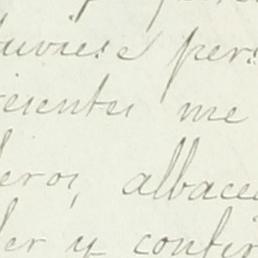 tuviese pers
resentes me
eros, albacea
der y confir